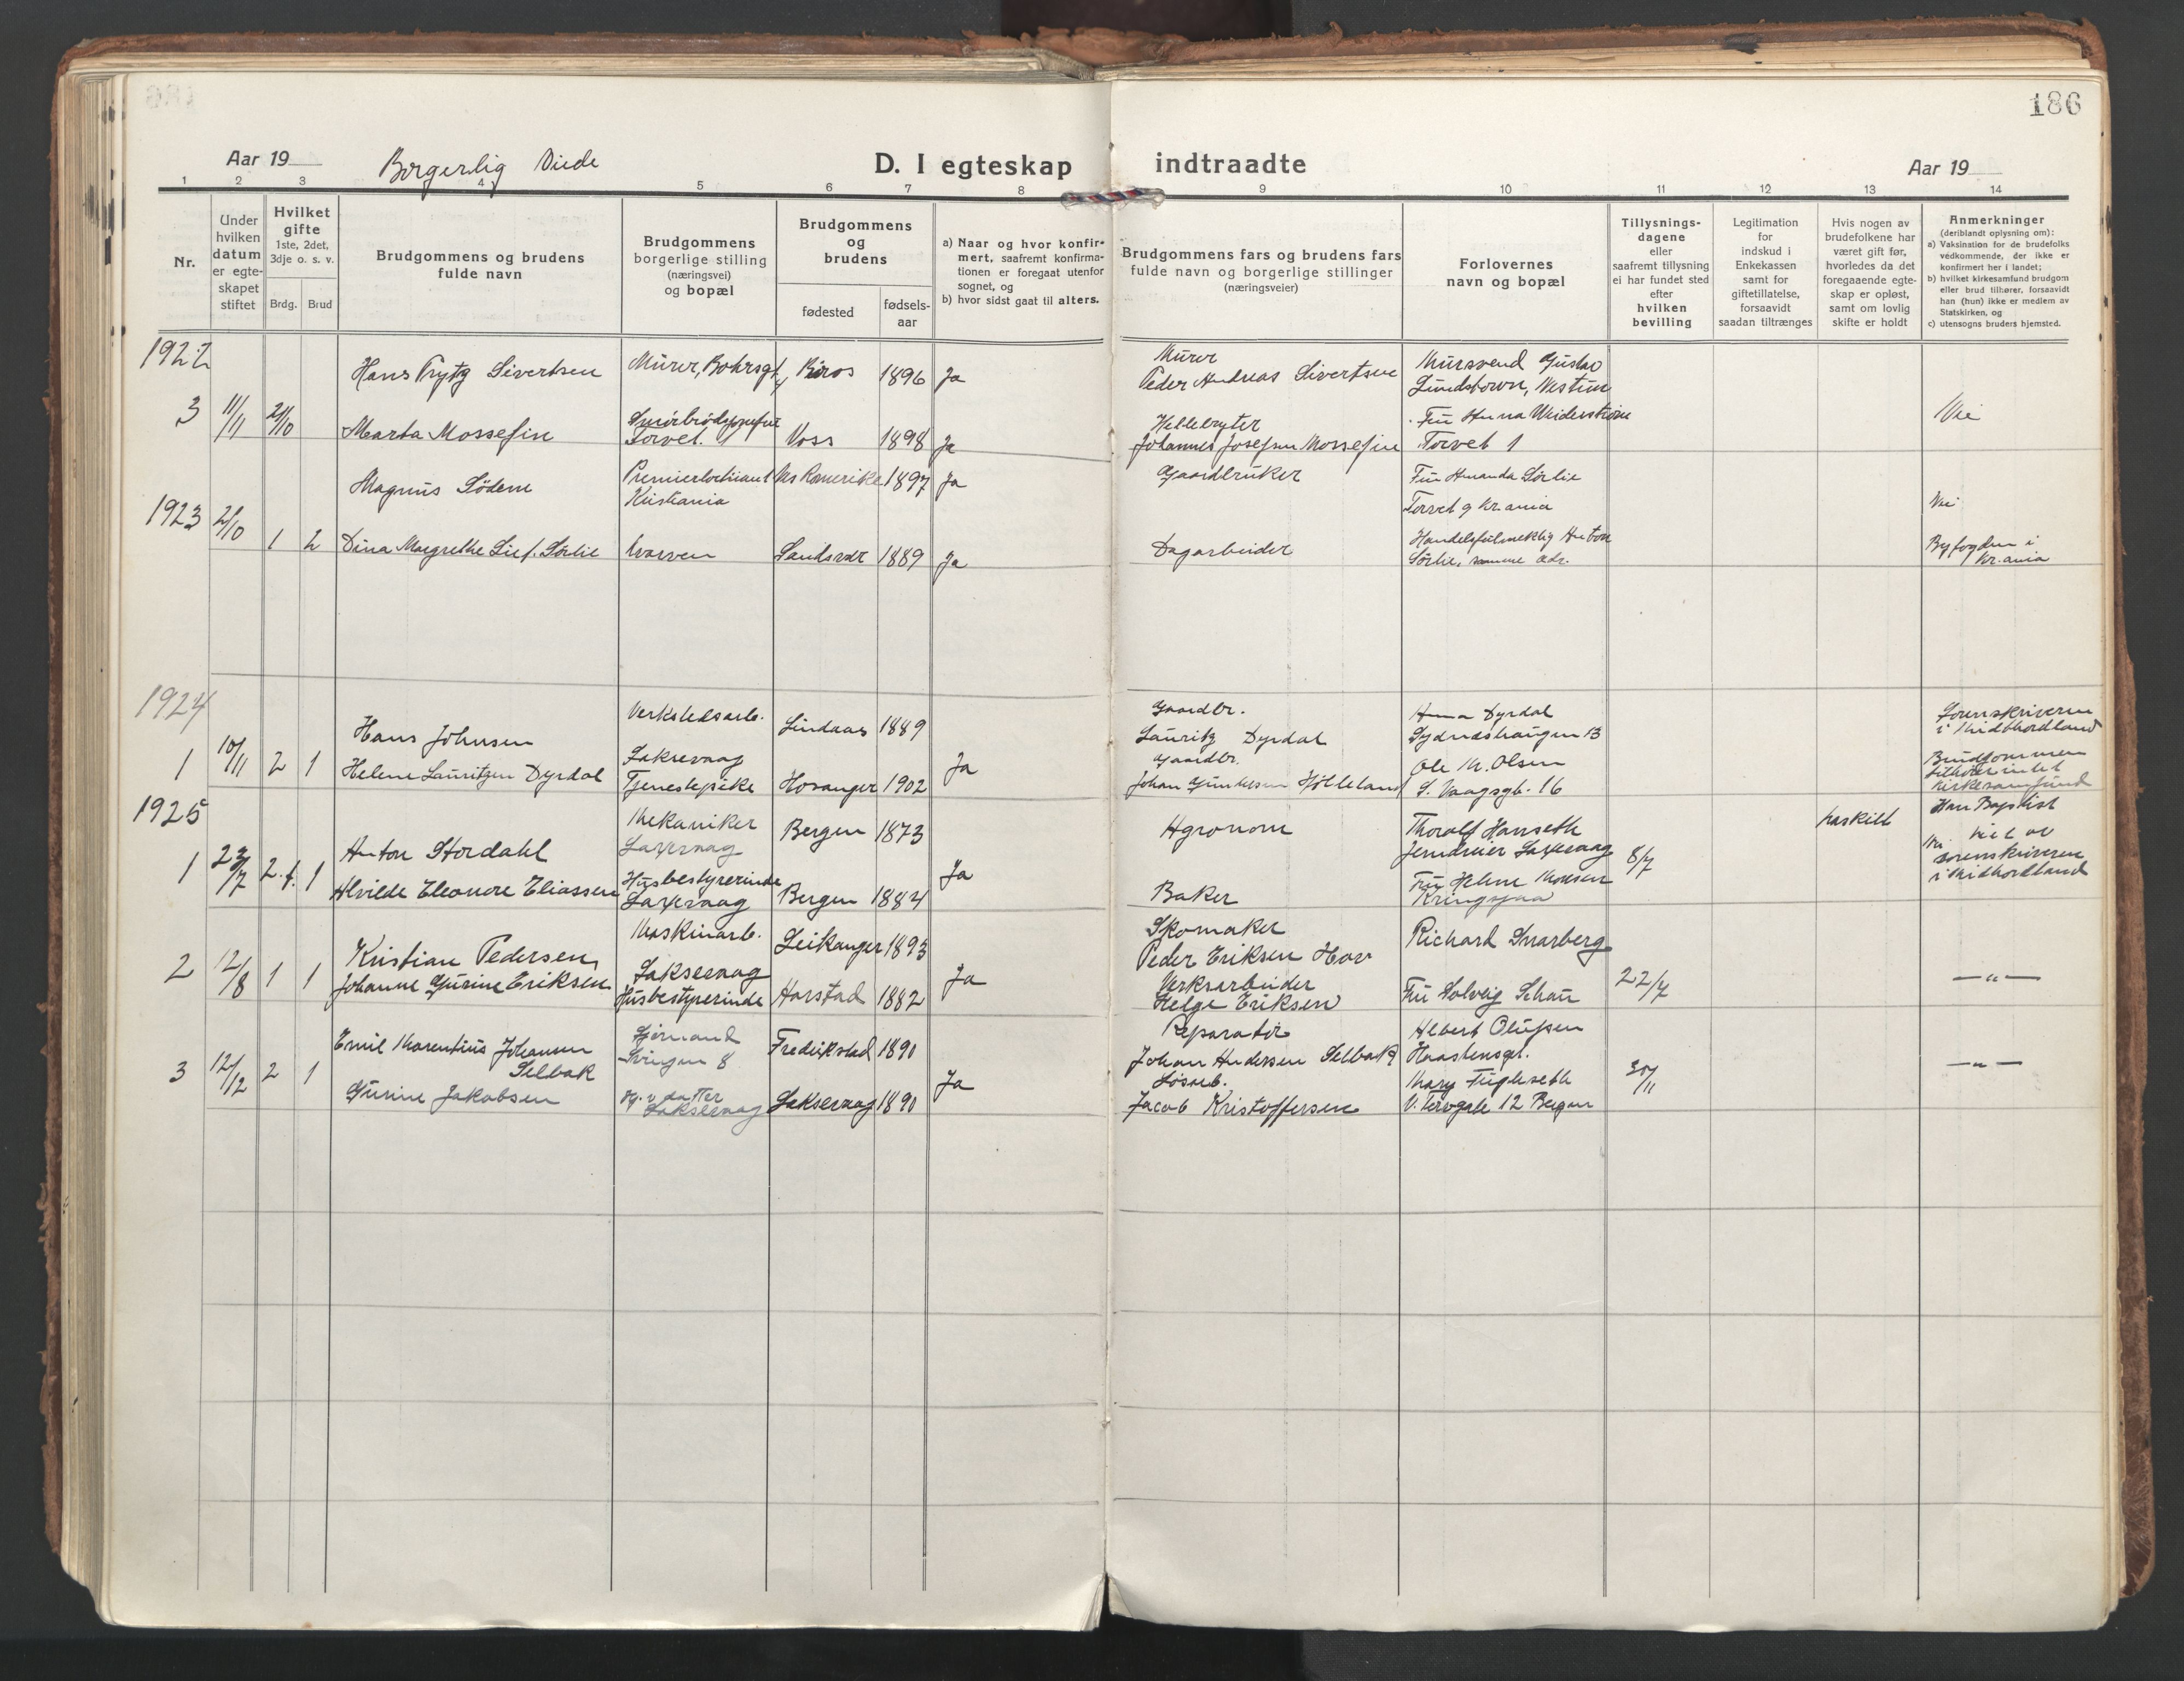 186
Aar 19
Borgerlig Viede
D. I egteskap
indtraadte
Aar 19
1 2 3 4 5 6 7 8 9 10 11 12 13 14
Nr.
Under hvilken datum er egte-skapet stiftet
Hvilket gifte
1ste, 2det, 3dje o. s. v.
Brdg. Brud
Brudgommens og brudens
fulde navn
Brudgommens
borgerlige stilling
(næringsvei)
og bopæl
Brudgommens
og
brudens
fødested
fødsels-
aar
a) Naar og hvor konfir-
mert, saafremt konfirma-
tionen er foregaat utenfor
sognet, og
b) hvor sidst gaat til alters.
Brudgommens fars og brudens fars
fulde navn og borgerlige stillinger
(næringsveier)
Forlovernes
navn og bopæl
Tillysnings-
dagene
eller
saafremt tillysning
ei har fundet sted
efter
hvilken
bevilling
Legitimation
for
indskud i
Enkekassen
samt for
giftetillatelse,
forsaavidt
saadan tiltrænges
Hvis nogen av
brudefolkene har
været gift før,
hvorledes da det
foregaaende egte-
skap er opløst,
samt om lovlig
skifte er holdt
Anmerkninger
(deriblandt oplysning om):
a) Vaksination for de brudefolks
vedkommende, der ikke er
konfirmert her i landet;
b) hvilket kirkesamfund brudgom
eller brud tilhører, forsaavidt
han (hun) ikke er medlem av
Statskirken, og
c) utensogns bruders hjemsted.
1922
3 11/11
Hans Trytg Sivertsen
Murer, Bohrsgt.
Røros 1896 Ja
Murer
Peder Andreas Sivertsen
Mursvend Gustav
Marta Mossefin
Torvet.
Voss 1898 Ja
Hellebryter
Johannes Josefsen Mossefin
Torvet 1
Nei
1923 2/10 1 2
Magnus Södem
Kristiania
Nes Romerike 1897 Ja
Gaardbruker
Fru Amanda Sörlie
Torvet 9 Kr.ania
Nei
Dina Margrethe Sörlie
Sandsvær 1889 Ja
Dagarbeider
Handelsfuldmektig Anton
Sörlie, samme adr.
Byfogden i
Kr.ania
1924
1 10/11 2 1
Hans Johnsen
Verkstedsarb.
Laksevaag
Lindaas 1889
Gaardbr.
Lauritz Dyrdal
Anna Dyrdal
Sydneshaugen 13
Sorenskriveren
i Midthordland
Helene Lauritzen Dyrdal
Tjenestepike
Hosanger 1902 Ja
Gaardbr.
Ole M. Olsen
S. Vaagsgt. 16
Brudgommen
tilhører intet
kirkesamfund
1925
1 23/7 2.f. 1
Anton Stordahl
Mekaniker
Laxevaag
Bergen 1873
Agronom
Thoralf Hanseth
8/7
fraskilt
Han Baptist
sorenskriveren
i Midhordland
Alvilde Eleonore Eliassen
Husbestyrerinde
Laxevaag
Bergen 1884 Ja
Baker
Kringsjaa
2 12/8 1 1
Kristian Pedersen
Maskinarb.
Laksevaag
Leikanger 1893
Skomaker
Peder Eriksen Hov
Richard Snarberg
22/7
— " —
Johanne Gurine Eriksen
Husbestyrerinde
Harstad 1882 Ja
Verksarbeider
Helge Eriksen
Fru Solveig Schau
3 12/12 2 1
Emil Marentius Johansen
Selbak
Sjömand
Svingen 8
Fredrikstad 1890
Reparatör
Johan Andersen Selbak
Albert Olufsen
30/11
— " —
Gurine Jakobsen
Laksevaag
Laksevaag 1890 Ja
Lösarb.
Jacob Kristoffersen
Mary Fugleseth
V. Torvgate 12 Bergen